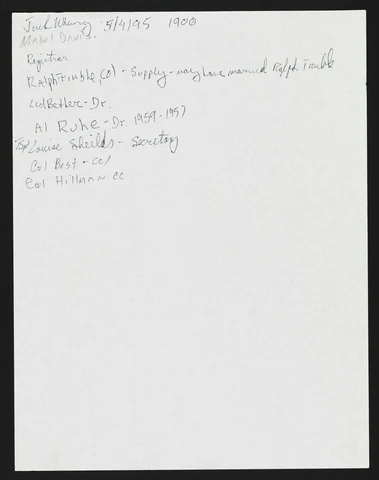 Jack 5/4/95 1900
Mabel Davis.
Registrar
Ralph Trimble, Col - Supply - may have married Ralph Trimble
Ledbetter - Dr.
Al Ruhe - Dr. 1954 - 1957
Louise Sheilds - Secretary
Col Best - CC/
Col Hillman CC